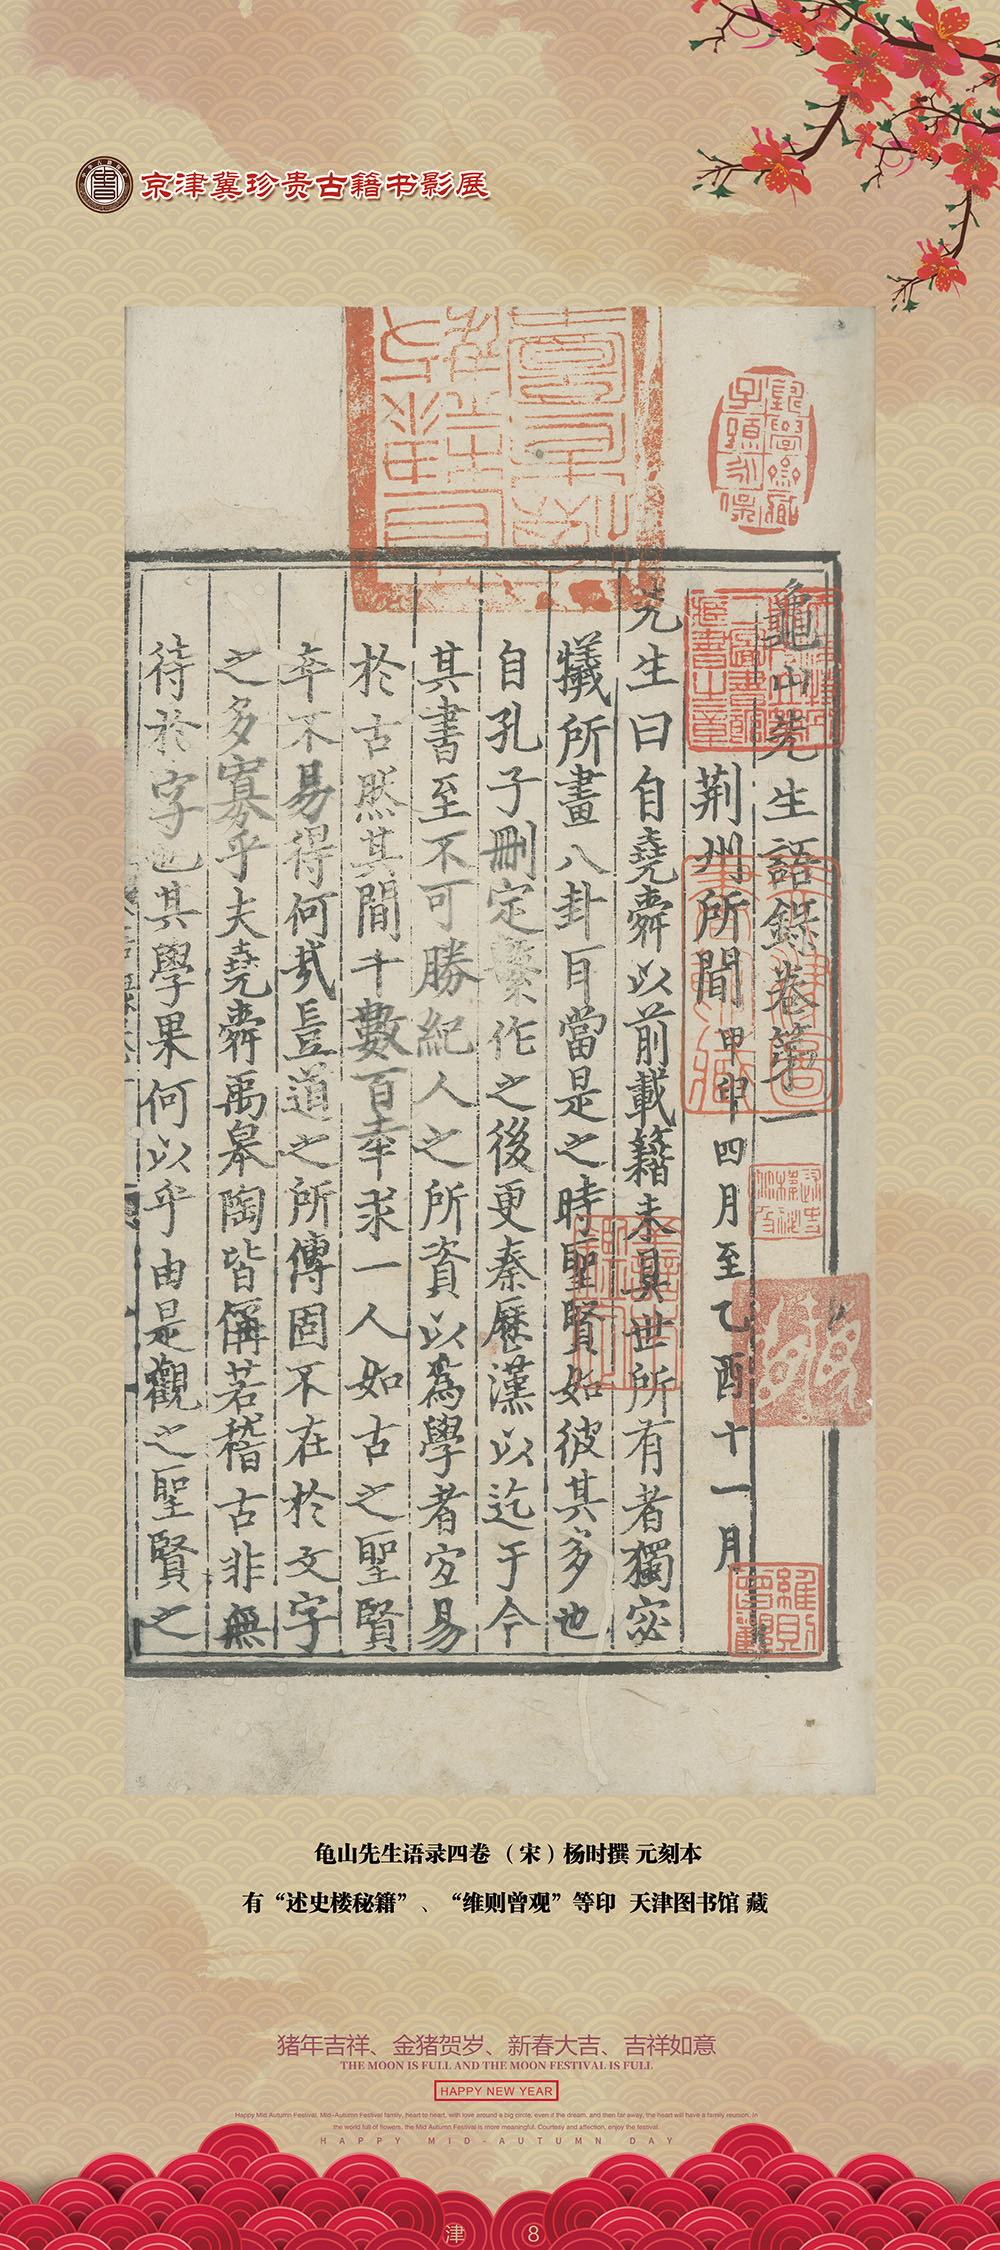 京津冀珍贵古籍书影展
龜山先生語録卷第一
荆州所聞 甲申四月至乙酉十一月
先生曰自堯舜以前載籍未具世所有者獨宓
犧所畫八卦耳當是之時聖賢如彼其多也
自孔子刪定繫作之後更秦歷漢以迄于今
其書至不可勝紀人之所資以爲學者宜易
於古然其間千數百年求一人如古之聖賢
卒不易得何哉豈道之所傳固不在於文字
之多寡乎夫堯舜禹皋陶皆偁若稽古非無
待於字也其學果何以乎由是觀之聖賢之
維則曾觀
龟山先生语录四卷 （宋）杨时撰 元刻本
有“述史楼秘籍”、“维则曾观”等印 天津图书馆 藏
猪年吉祥、金猪贺岁、新春大吉、吉祥如意
THE MOON IS FULL AND THE MOON FESTIVAL IS FULL
HAPPY NEW YEAR
Happy Mid Autumn Festival, Mid-Autumn Festival family, heart to heart, with love around a big circle, even if the dream, and then far away, the heart will have a family reunion. In
the world full of flowers, the Mid Autumn Festival is more meaningful. Courtesy and affection, enjoy the festival.
HAPPY MID-AUTUMN DAY
津 8